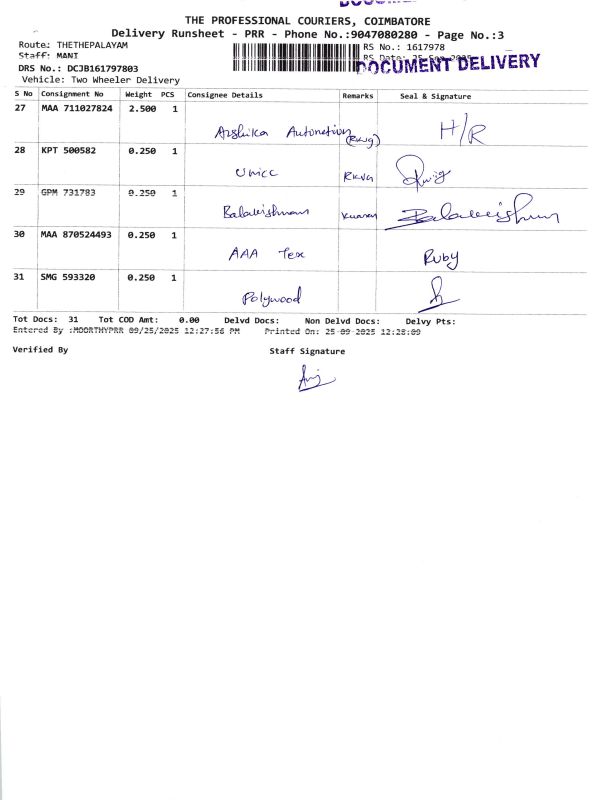 THE PROFESSIONAL COURIERS, COIMBATORE
Delivery Runsheet - PRR - Phone No.:9047080280 - Page No.:3
Route: THETHEPALAYAM
RS No.: 1617978
Staff: MANI
RS Date: 25-Sep-2025
DOCUMENT DELIVERY
DRS No.: DCJB161797803
Vehicle: Two Wheeler Delivery
S No Consignment No Weight PCS Consignee Details Remarks Seal & Signature
27 MAA 711027824 2.500 1
Automation H/R
28 KPT 500582 0.250 1
Unicc
29 GPM 731783 0.250 1
30 MAA 870524493 0.250 1
AAA Tex Ruby
31 SMG 593320 0.250 1
Polywood
Tot Docs: 31 Tot COD Amt: 0.00 Delvd Docs: Non Delvd Docs: Delvy Pts:
Entered By :MOORTHYPRR 09/25/2025 12:27:56 PM Printed On: 25-09-2025 12:28:09
Verified By Staff Signature